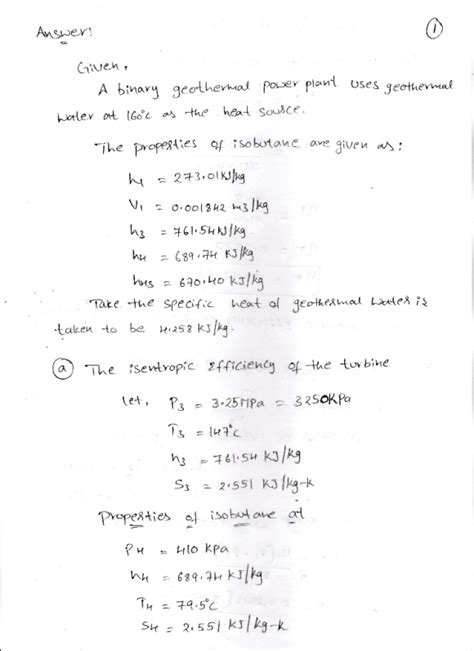 Answer:
①
Given,
A binary geothermal power plant uses geothermal
water at 160°c as the heat source.
The properties of isobutane are given as:
h₁ = 273.01KJ/kg
V₁ = 0.001842 m3/kg
h₃ = 761.54KJ/kg
h₄ = 689.74 KJ/kg
h₄s = 670.40 KJ/kg
Take the specific heat of geothermal water is
taken to be 4.258 KJ/kg.
ⓐ The isentropic Efficiency of the turbine
let, P₃ = 3.25MPa = 3250KPa
T₃ = 147°c
h₃ = 761.54 KJ/kg
S₃ = 2.551 KJ/kg-k
Properties of isobutane at
P₄ = 410 KPa
h₄ = 689.74 KJ/kg
T₄ = 79.5°c
S₄ = 2.551 KJ/kg-k